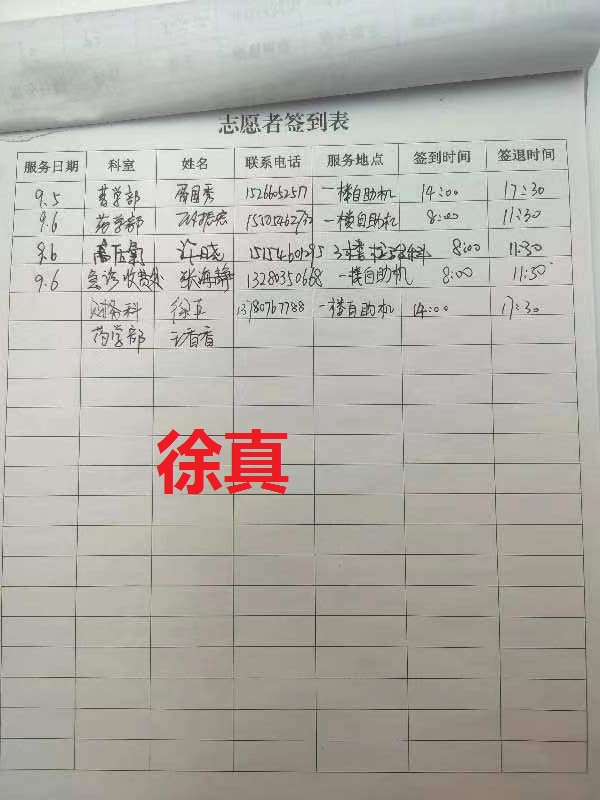 志愿者签到表
服务日期 科室 姓名 联系电话 服务地点 签到时间 签退时间
9.5 药学部 15266052517 一楼自助机 14:00 17:30
9.6 药学部 一楼自助机 8:00 11:30
9.6 高压氧 8:00 11:30
9.6 急诊收费处 张海静 13280350668 一楼自助机 8:00 11:30
财务科 徐真 13780767788 一楼自助机 14:00 17:30
药学部 王香香
徐真